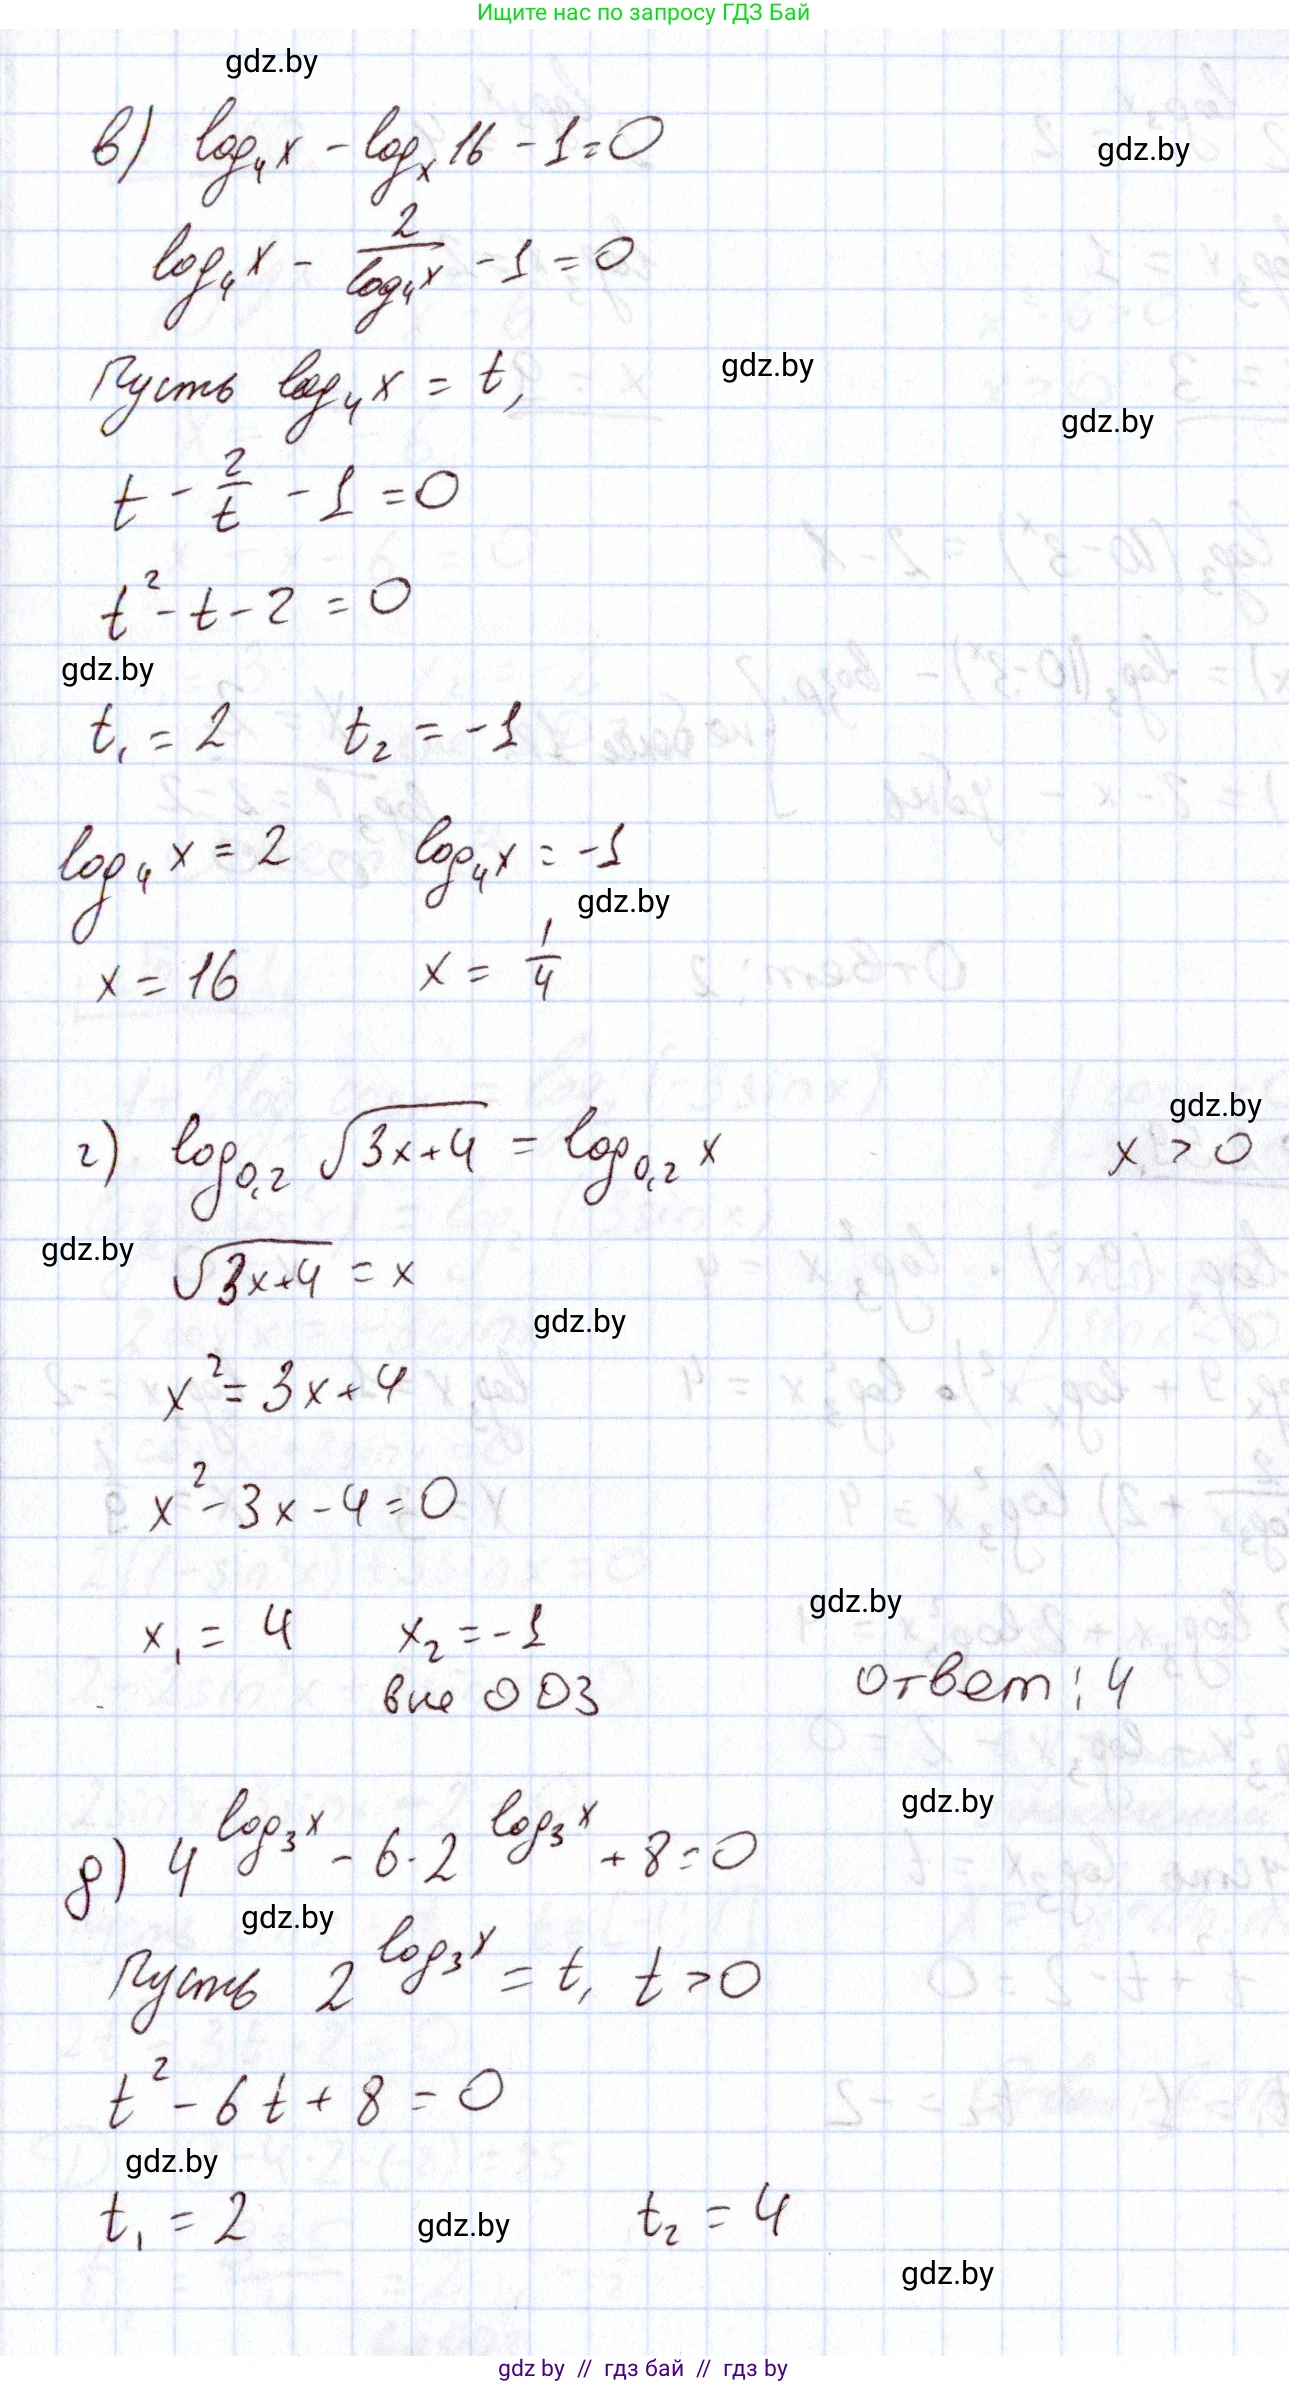 Ищите нас по запросу ГДЗ Бай
gdz.by
в) log₄x - logₓ16 - 1 = 0
gdz.by
log₄x - 2/log₄x - 1 = 0
Пусть log₄x = t,
gdz.by
gdz.by
t - 2/t - 1 = 0
t² - t - 2 = 0
gdz.by
t₁ = 2 t₂ = -1
log₄x = 2 log₄x = -1
gdz.by
x = 16 x = 1/4
gdz.by
г) log₀,₂ √(3x+4) = log₀,₂ x x > 0
gdz.by
√(3x+4) = x
gdz.by
x² = 3x + 4
x² - 3x - 4 = 0
gdz.by
x₁ = 4 x₂ = -1
вне ОДЗ Ответ: 4
gdz.by
д) 4^(log₃x) - 6·2^(log₃x) + 8 = 0
gdz.by
Пусть 2^(log₃x) = t, t > 0
t² - 6t + 8 = 0
gdz.by
t₁ = 2 t₂ = 4
gdz.by
gdz.by
gdz by // гдз бай // гдз by